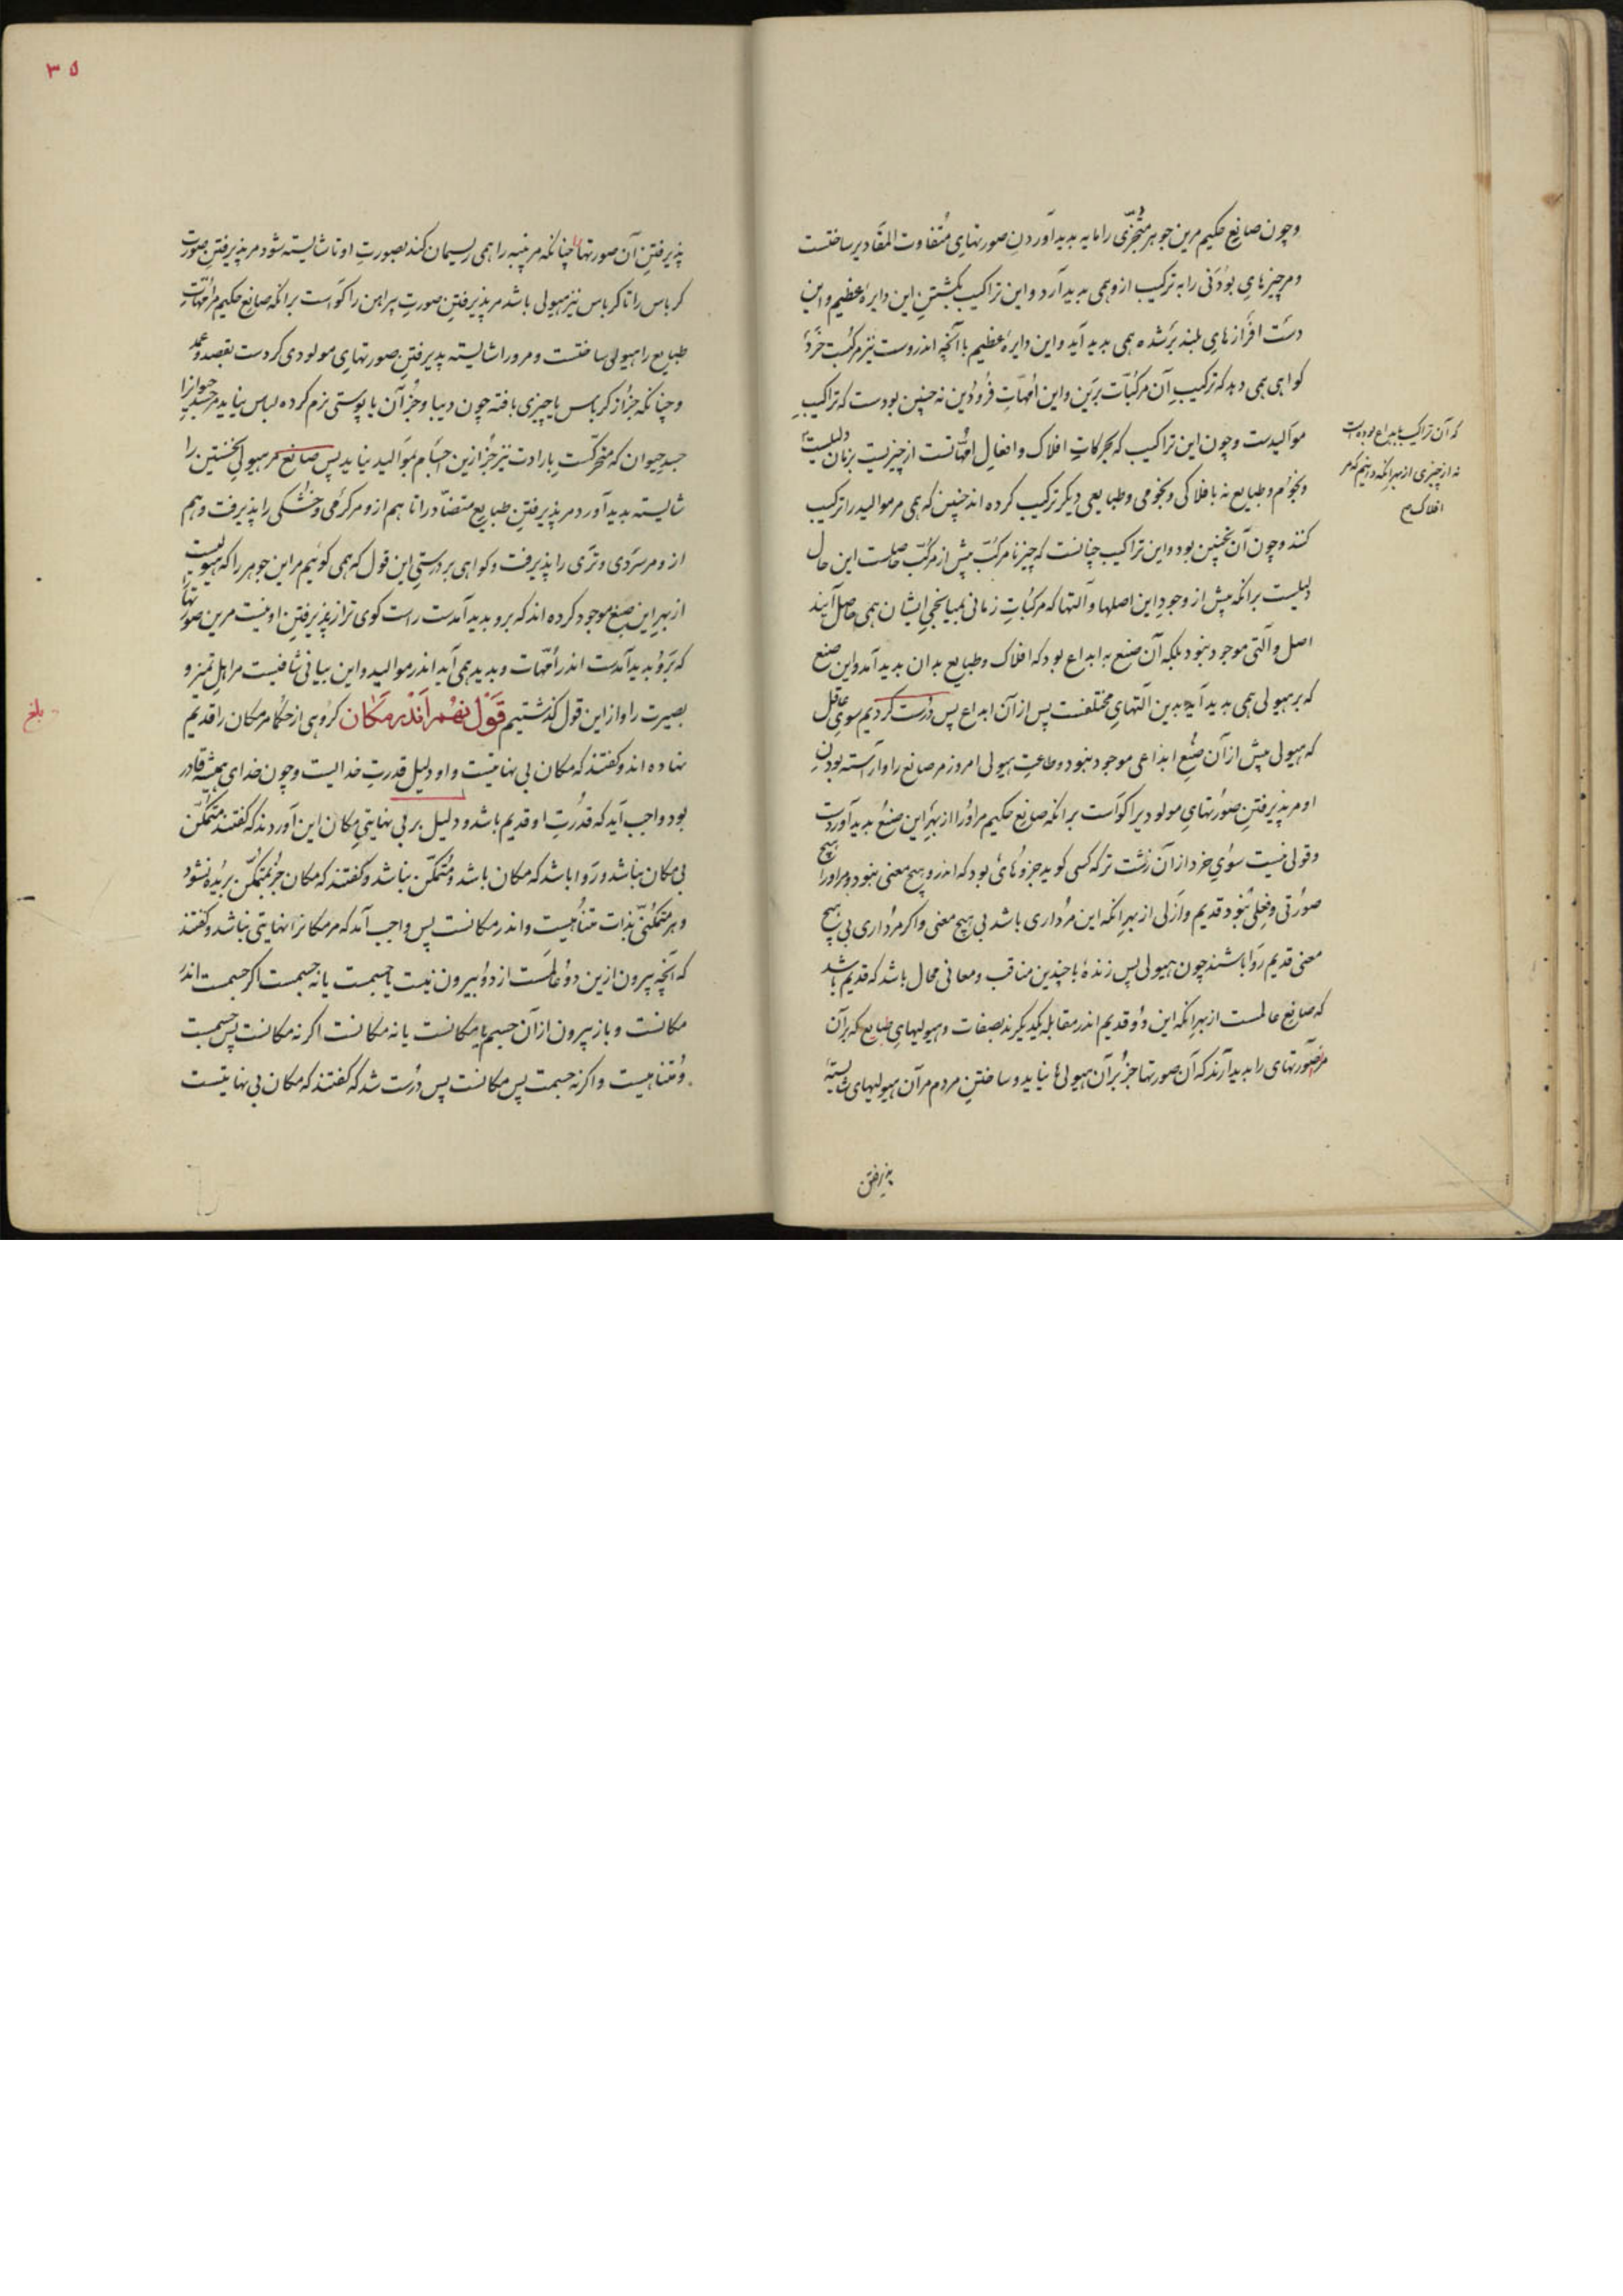 وچون صانع حکیم مرین جوهر متجزّی را مایه پدید آوردنِ صورتهایِ متفاوت المقادیر ساختست
ومرچیزهایِ بودنی را به ترکیب ازو همی پدید آرد واین تراکیب بگشتنِ این دایرهٔ عظیم واین
دست افزارهایِ بلند برشده همی پدید آید واین دایرهٔ عظیم با آنچه اندروست نیز مرکبست خرد
کواهی همی دهد که ترکیبِ آن مرکبّات برین واین امّهاتِ فرودین نه چنین بودست که تراکیبِ
موالیدست وچون این تراکیب که بحرکاتِ افلاک وافعالِ امّهاتست از چیزیست بزمان دلیلست
که آن تراکیب بابداع بوده است
نه از چیزی از بهر آنکه دانیم که مر
افلاک
ونجوم وطبایع نه بافلاکی ونجومی وطبایعی دیگر ترکیب کرده اند چنین که همی مر موالید را ترکیب
کنند وچون آن نچنین بود واین تراکیب چنانست که چیز نامرکّب پیش از مرکّب حاصلست این حال
دلیلست برانکه پیش از وجودِ این اصلها وآلتها که مرکّباتِ زمانی بمیانجیِ ایشان همی حاصل آیند
اصل وآلتی موجود نبود بلکه آن صنع به ابداع بود که افلاک وطبایع بدان پدید آمد واین صنع
که بر هیولی همی پدید آید بدین آلتهایِ مختلفست پس از آن ابداع پس درست کردیم سویِ عاقل
که هیولی پیش از آن صنعِ ابداعی موجود نبود وطاعتِ هیولی امروز مر صانع را وآراسته بودنِ
او مر پذیرفتنِ صورتهایِ مولودی را کواست برانکه صانع حکیم مر اورا از بهرِ این صنع پدید آوردست
وقولی نیست سویِ خرد از آن زشت تر که کسی کوید جزوهائی بود که اندرو هیچ معنی نبود ومر اورا هیچ
صورتی وفعلی نبود قدیم وازلی از بهرِ انکه این مرداری باشد بی هیچ معنی واکر مرداری بی هیچ
معنی قدیم روا باشند چون هیولی پس زندهٔ با چندین مناقب ومعانی محال باشد که قدیم باشد
که صانعِ عالمست از بهرِ انکه این دو قدیم اندر مقابله یکدیکرند بصفات وهیولیهایِ طبایع که بر آن
مر صورتهای را پدید آرند که آن صورتها جز بر آن هیولیها نیاید وساختنِ مردم مر آن هیولیهای شایسته
پذیرفتن
۳۵
پذیرفتنِ آن صورتها چنانکه مر پنبه را همی ریسمان کند بصورتِ او تا شایسته شود مر پذیرفتنِ صورت
کرباس را تا کرباس نیز هیولی باشد مر پذیرفتنِ صورتِ پیراهن را کواست برانکه صانع حکیم مر امّهاتِ
طبایع را هیولی ساختست ومرورا شایسته پذیرفتنِ صورتهایِ مولودی کردست بقصد وعمد
وچنانکه جز از کرباس یا چیزی بافته چون دیبا وجز آن یا پوستی نرم کرده لباس نیاید مر جسدِ حیوانرا
جسدِ حیوان که متحرکست بارادت نیز جز ازین اجسام بموالید نیاید پس صانع مر هیولیِ نخستین را
شایسته پدید آورد مر پذیرفتنِ طبایعِ متضادرا تا هم ازو مر کرمی وخشکی را پذیرفت وهم
ازو مر سردی وتری را پذیرفت وکواهی بر درستیِ این قول که همی کوئیم مر این جوهر را که هیولیست
از بهرِ این صنع موجود کرده اند که برو پدید آمدست راست کوی تر از پذیرفتنِ او نیست مرین صورتها را
که برو پدید آمدست اندر امّهات وپدید همی آید اندر موالید واین بیانی شافیست مر اهلِ تمیز و
بصیرت را واز این قول کذشتیم قول نهم اندر مکان کروهی از حکما مر مکان را قدیم
بلغ
نهاده اند وکفتند که مکان بی نهایتست واو دلیلِ قدرتِ خدایست وچون خدای همیشه قادر
بود واجب آید که قدرتِ او قدیم باشد ودلیل بر بی نهایتیِ مکان این آوردند که کفتند متمکّن
بی مکان نباشد وروا باشد که مکان باشد ومتمکّن نباشد وکفتند که مکان جز بمتمکّن بریده نشود
وهر متمکّنی بذات متناهیست واندر مکانست پس واجب آمد که مر مکانرا نهایتی نباشد وکفتند
که آنچه بیرون ازین دو عالمست از دو بیرون نیست یا جسمست یا نه جسمست اکر جسمست اندر
مکانست وباز بیرون از آن جسم یا مکانست یا نه مکانست اکر نه مکانست پس جسمست
ومتناهیست واکر نه جسمست پس مکانست پس درست شد که کفتند که مکان بی نهایتست